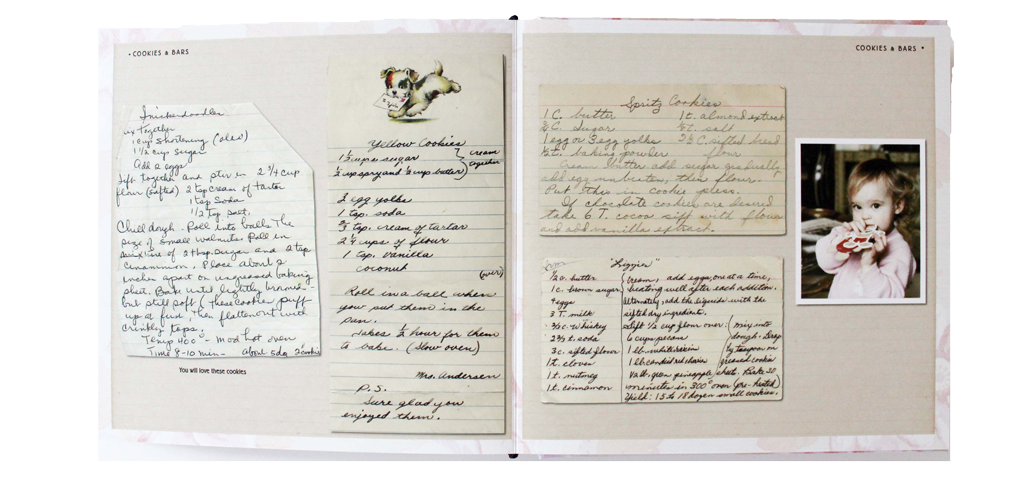 • COOKIES & BARS
Snickerdoodles
mix together
1 cup shortening (oleo)
1 1/2 cup sugar
Add 2 eggs
Sift together and stir in 2 3/4 cup
flour (sifted) 2 tsp cream of tartar
1 tsp soda
1/2 tsp salt.
Chill dough - Roll into balls the
size of small walnuts Roll in
mixture of 2 tbsp. sugar and 2 tsp
cinnammon. Place about 2
inches apart on ungreased baking
sheet. Bake until lightly browned -
but still soft (these cookies puff
up at first, then flatten out with
crinkley tops.
Temp 400° - mod hot oven
Time 8-10 min - about 5 doz 2" cookies
You will love these cookies
Yellow Cookies
1 1/2 cups sugar
1/2 cup spry and 1/2 cup butter
cream together
2 egg yolks
1 tsp. soda
2/3 tsp. cream of tartar
2 1/4 cups of flour
1 tsp. vanilla
coconut
(over)
Roll in a ball when
you put them in the
pan.
Takes 1/2 hour for them
to bake. (Slow oven)
Mrs. Andersen
P.S.
Sure glad you
enjoyed them.
COOKIES & BARS •
Spritz Cookies
1 C. butter 1 t. almond extract
Sugar salt
1 egg or 3 egg yolks sifted bread
baking powder flour
Cream butter add sugar gradually
add egg unbeaten, then flour.
Put this in cookie press.
If chocolate cookies are desired
take 6 T. cocoa sift with flour
and add vanilla extract.
"Lizzies"
butter
1 c. brown sugar
4 eggs
3 T. milk
whiskey
soda
3 c. sifted flour
1 t. cloves
1 t. nutmeg
1 t. cinnamon
cream, add eggs, one at a time,
beating well after each addition.
alternately, add the liquids with the
sifted dry ingredients.
Sift 1/2 cup flour over:
6 cups pecans
1 lb. white raisin
1 lb candied cherries
green pineapple
mix into
dough. Drop
by teaspoon on
greased cookie
sheet. Bake 30
minutes in 300° oven (pre-heated)
Yield: 15 to 18 dozen small cookies.